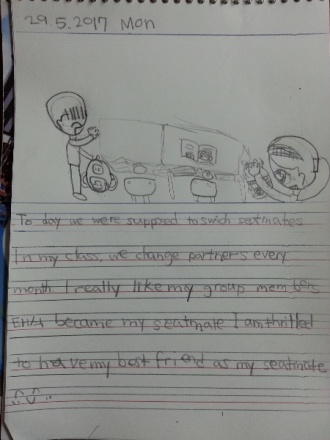 29.5.2017 Mon
To day we were supposed to swich seatmates
In my class, we change partners every
month I really like my group members
became my seatmate I am thrilled
to have my best friend as my seatmate